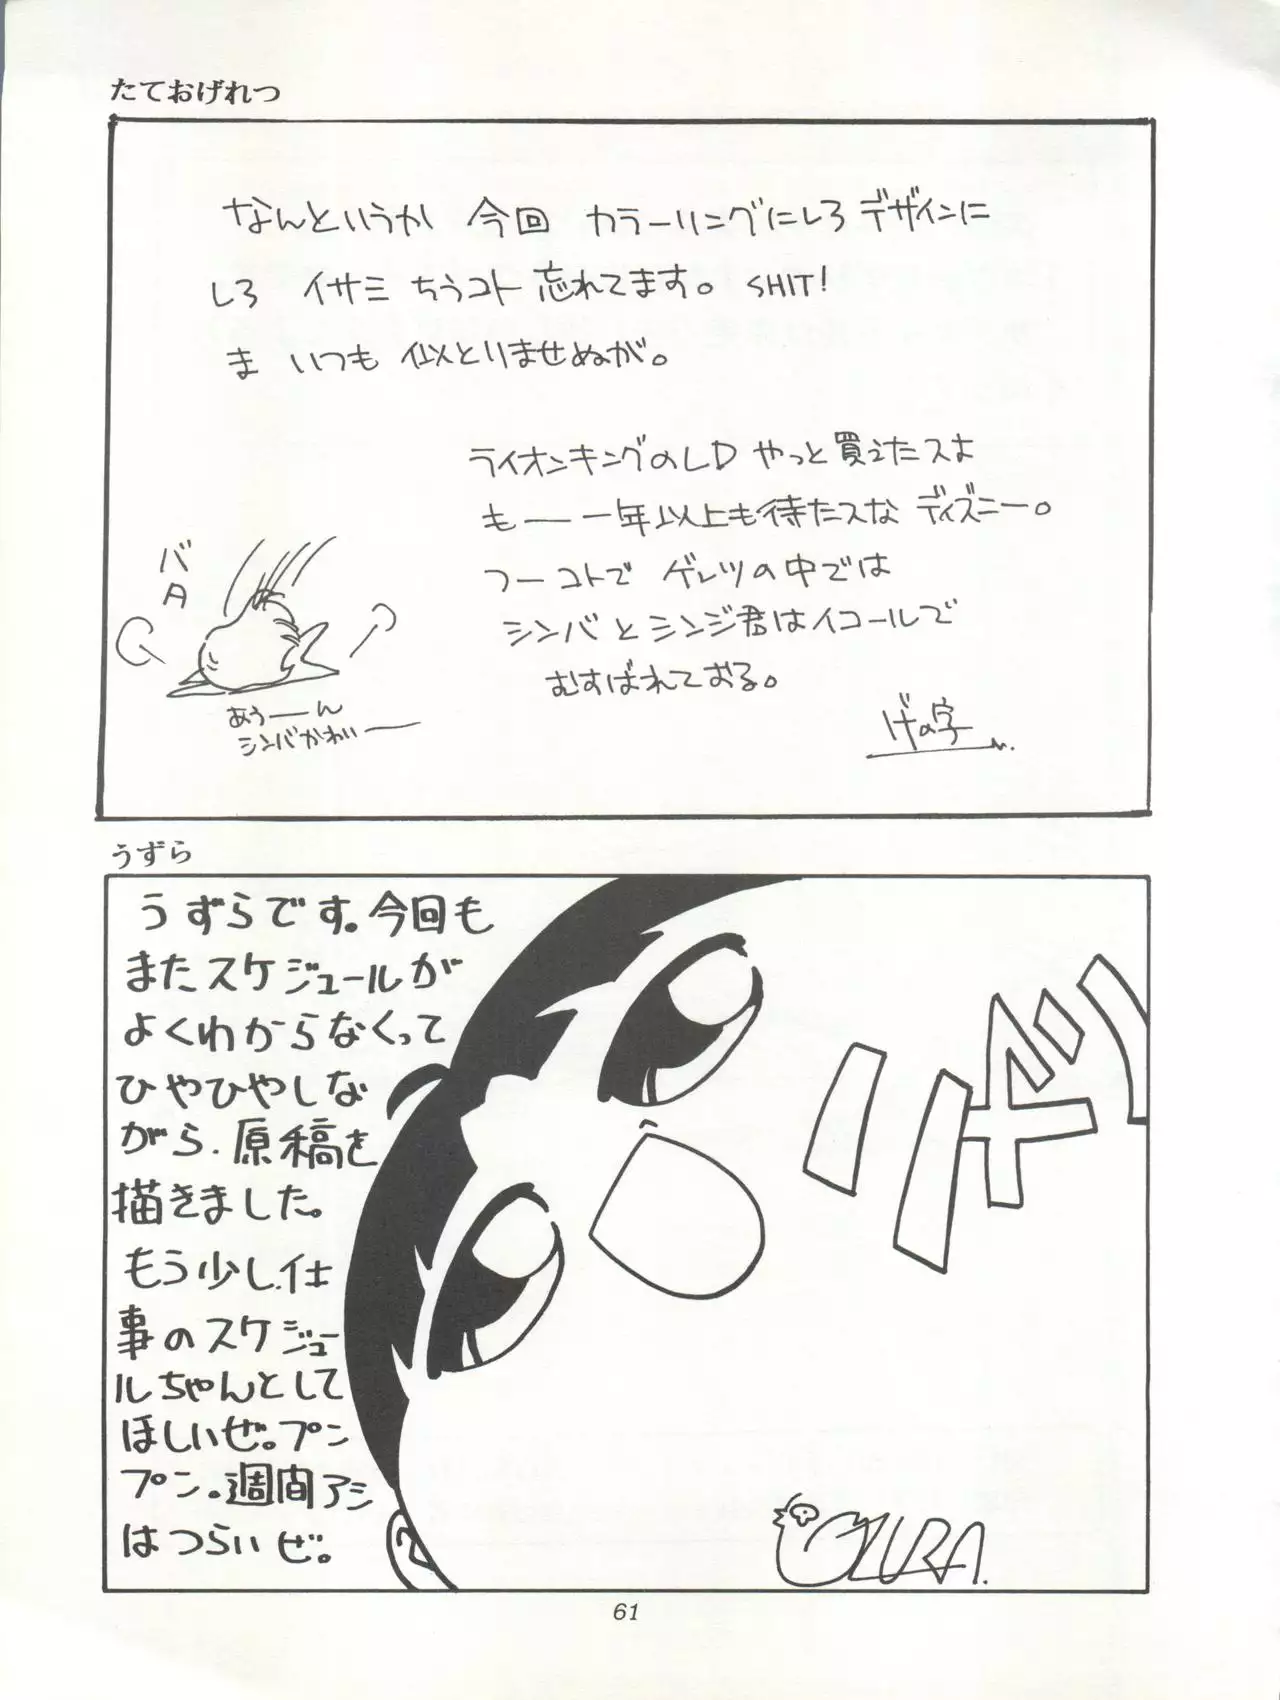 たておげれつ
なんというか 今回 カラーリングにしろ デザインに
しろ イサミ ちうコト 忘れてます。 SHIT!
ま いつも 似とりませぬが。
ライオンキングのLD やっと買えたスよ
も――一年以上も待たスな ディズニー。
つーコトで ゲレツの中では
シンバとシンジ君はイコールで
むすばれておる。
げの字
バタ
あうーーん
シンバかわいーー
うずら
うずらです。今回も
またスケジュールが
よくわからなくって
ひやひやしな
がら、原稿を
描きました。
もう少し、仕
事のスケジュー
ルちゃんとして
ほしいぜ。プン
プン。週間アシ
はつらいぜ。
UZURA.
61